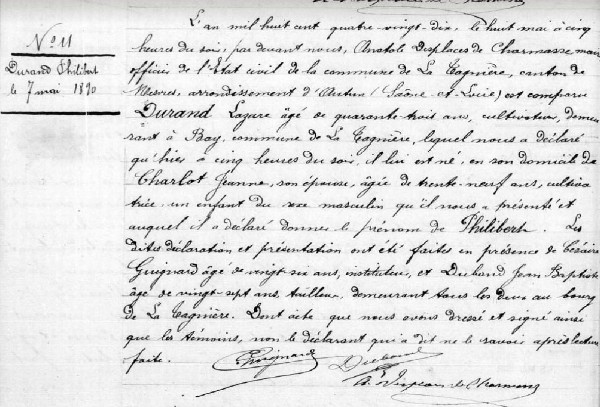 No 11
Durand Philibert
le 7 mai 1890
L'an mil huit cent quatre-vingt-dix, le huit mai à cinq
heures du soir, par devant nous, Anatole Desplaces de Charmasse maire
officier de l'État civil de la commune de La Tagnière, canton de
Mesvres, arrondissement d'Autun (Saône-et-Loire) est comparu
DURAND Lazare âgé de quarante-trois ans, cultivateur, demeu
rant à Bay, commune de La Tagnière, lequel nous a déclaré
qu'hier à cinq heures du soir, il lui est né, en son domicile de
CHARLOT Jeanne, son épouse, âgée de trente-neuf ans, cultiva
trice, un enfant du sexe masculin qu'il nous a présenté et
auquel il a déclaré donner le prénom de Philibert. Les
dites déclaration et présentation ont été faites en présence de Césaire
Guignard âgé de vingt-six ans, instituteur, et Dubaud Jean-Baptiste
âgé de vingt-sept ans, tailleur, demeurant tous les deux au bourg
de La Tagnière. Dont acte que nous avons dressé et signé ainsi
que les témoins, non le déclarant qui a dit ne le savoir après lecture
faite.
Guignard
A. Desplaces de Charmasse